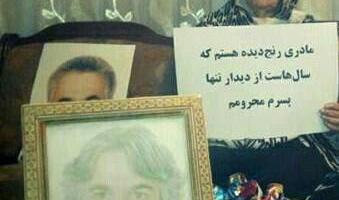 مادری رنج‌دیده هستم که
سال‌هاست از دیدار تنها
پسرم محرومم